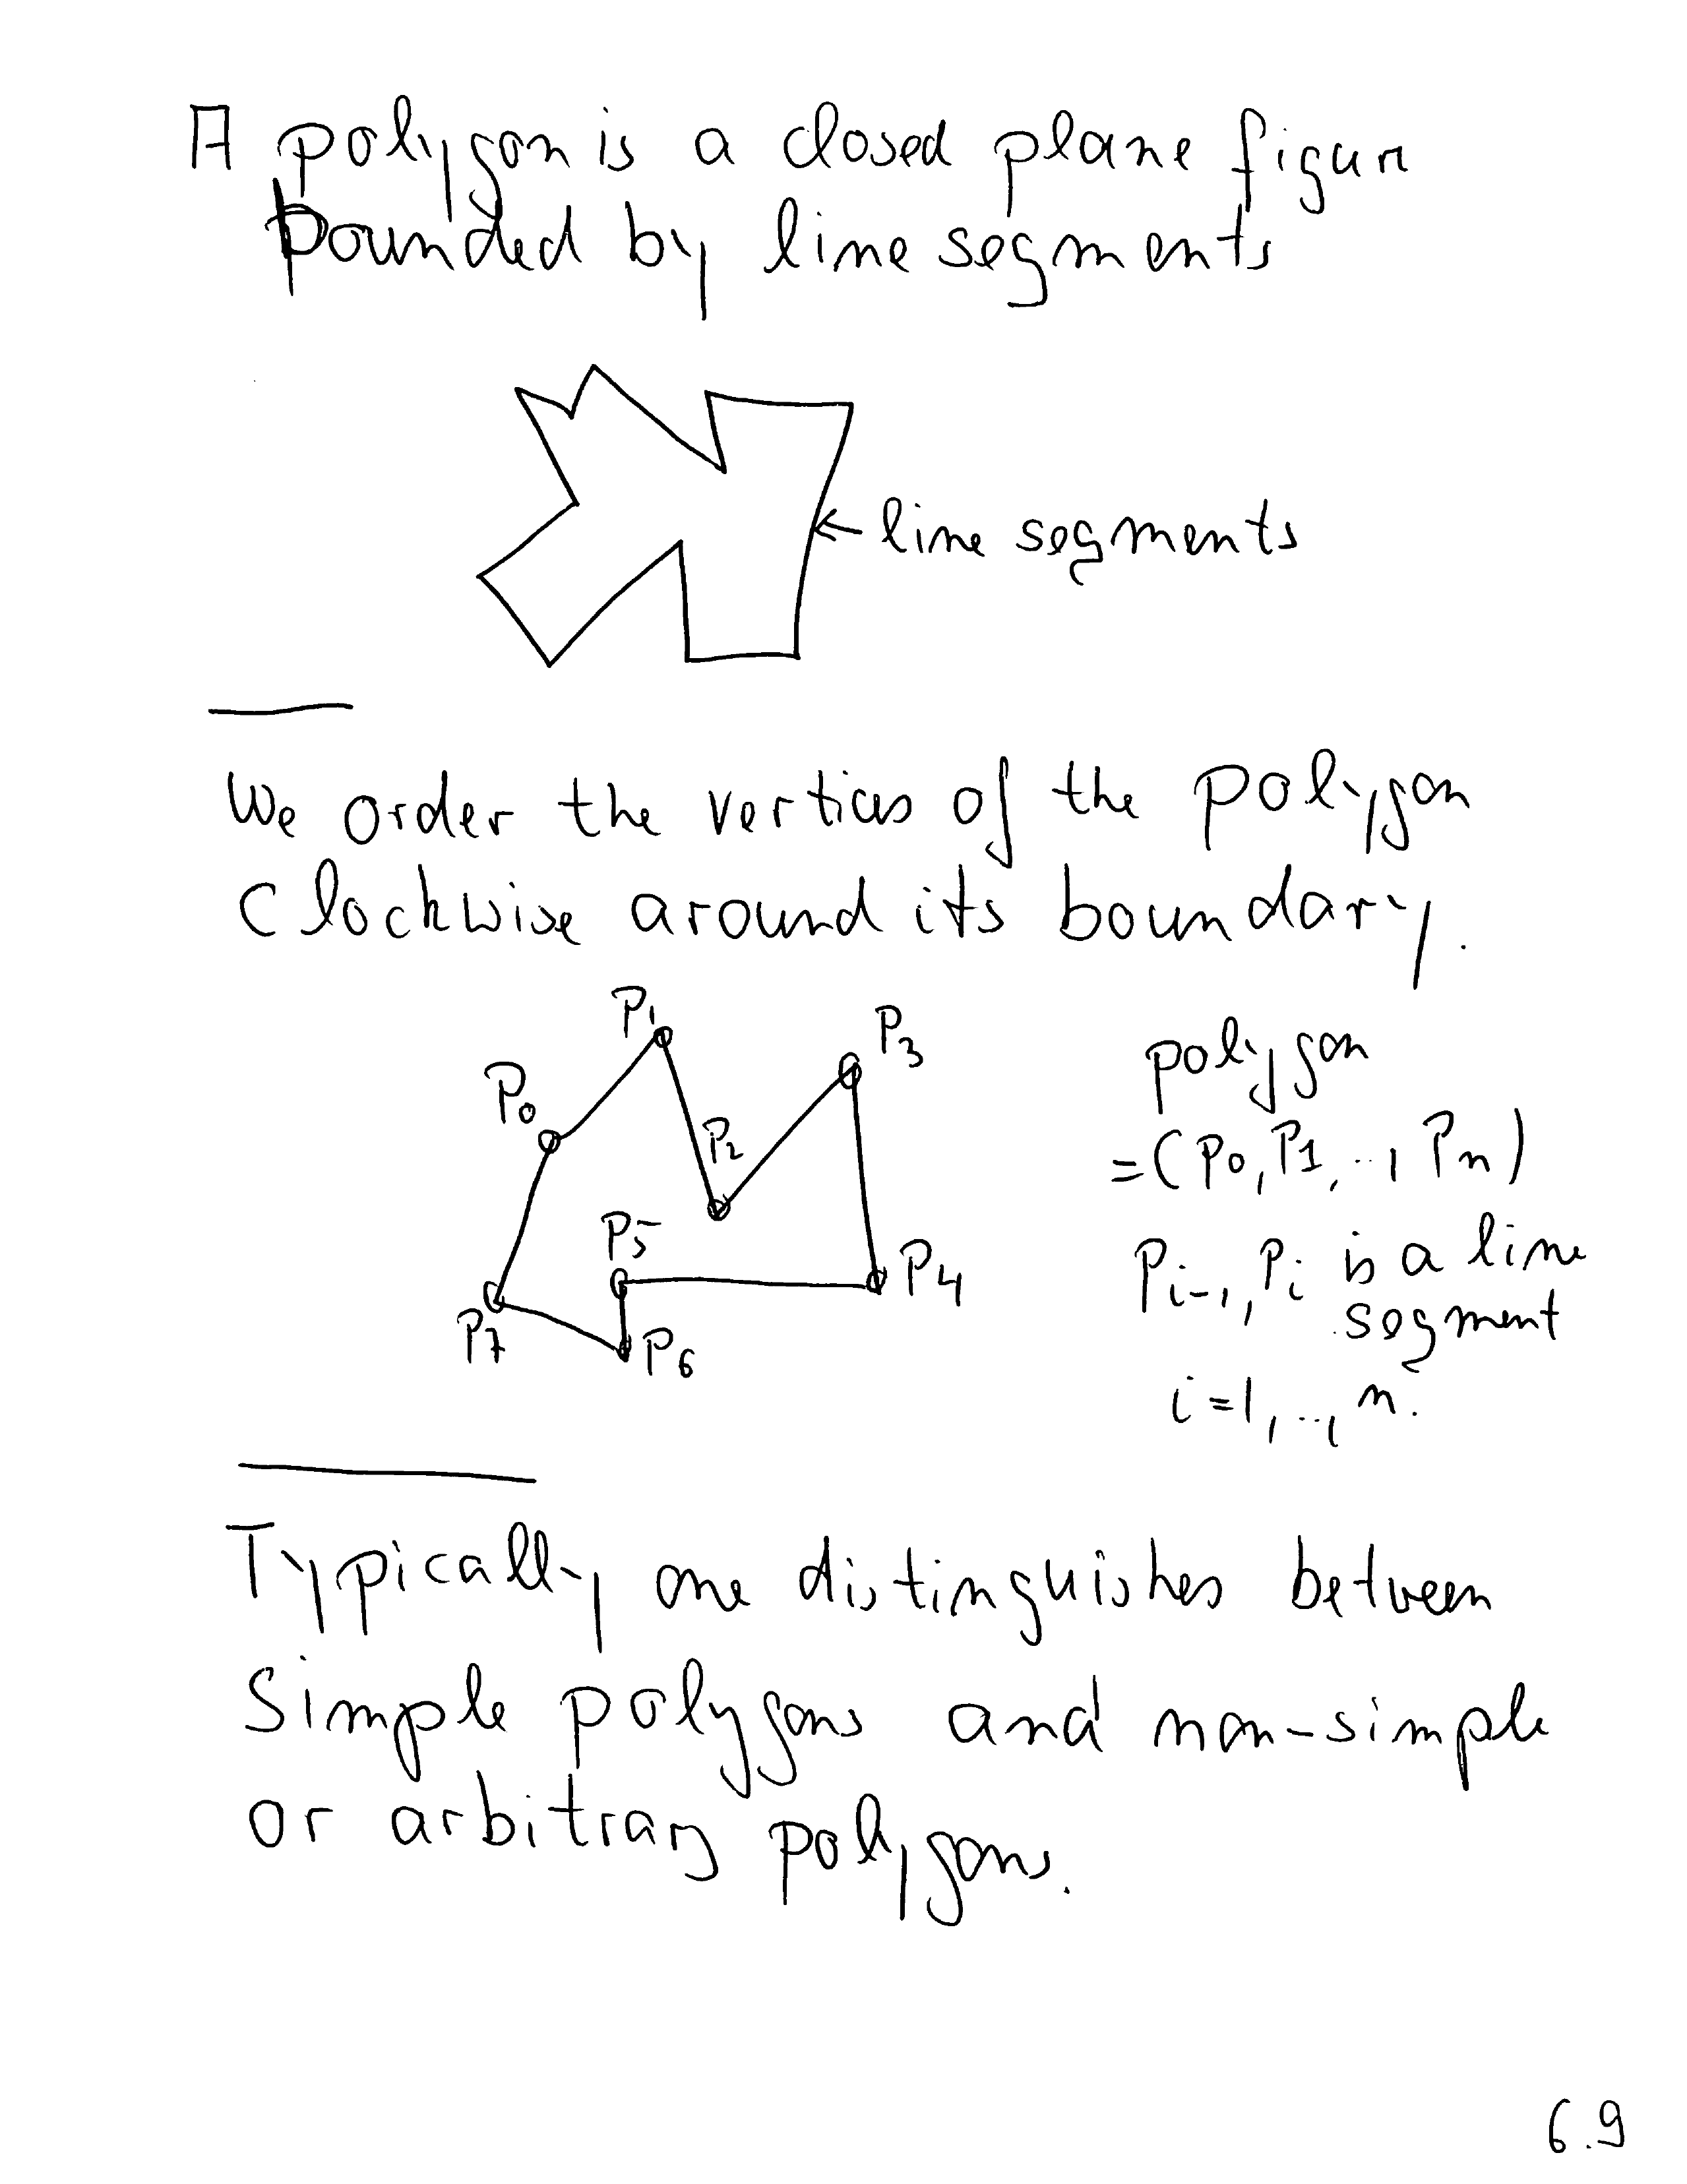 A polygon is a closed plane figure
bounded by line segments
← line segments
We order the vertices of the polygon
clockwise around its boundary.
P1
P3
P0
P2
P5
P4
P7
P6
polygon
= (P0, P1, .., Pn)
Pi-1, Pi is a line
segment
i = 1, .., n.
Typically one distinguishes between
simple polygons and non-simple
or arbitrary polygons.
6.9